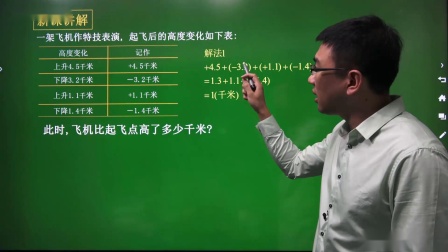 新课讲解
一架飞机作特技表演，起飞后的高度变化如下表：
高度变化 记作
上升4.5千米 +4.5千米
下降3.2千米 −3.2千米
上升1.1千米 +1.1千米
下降1.4千米 −1.4千米
此时，飞机比起飞点高了多少千米？
解法1
+4.5＋(−3.2)＋(+1.1)＋(−1.4)
=1.3＋1.1＋ .4)
=1(千米)